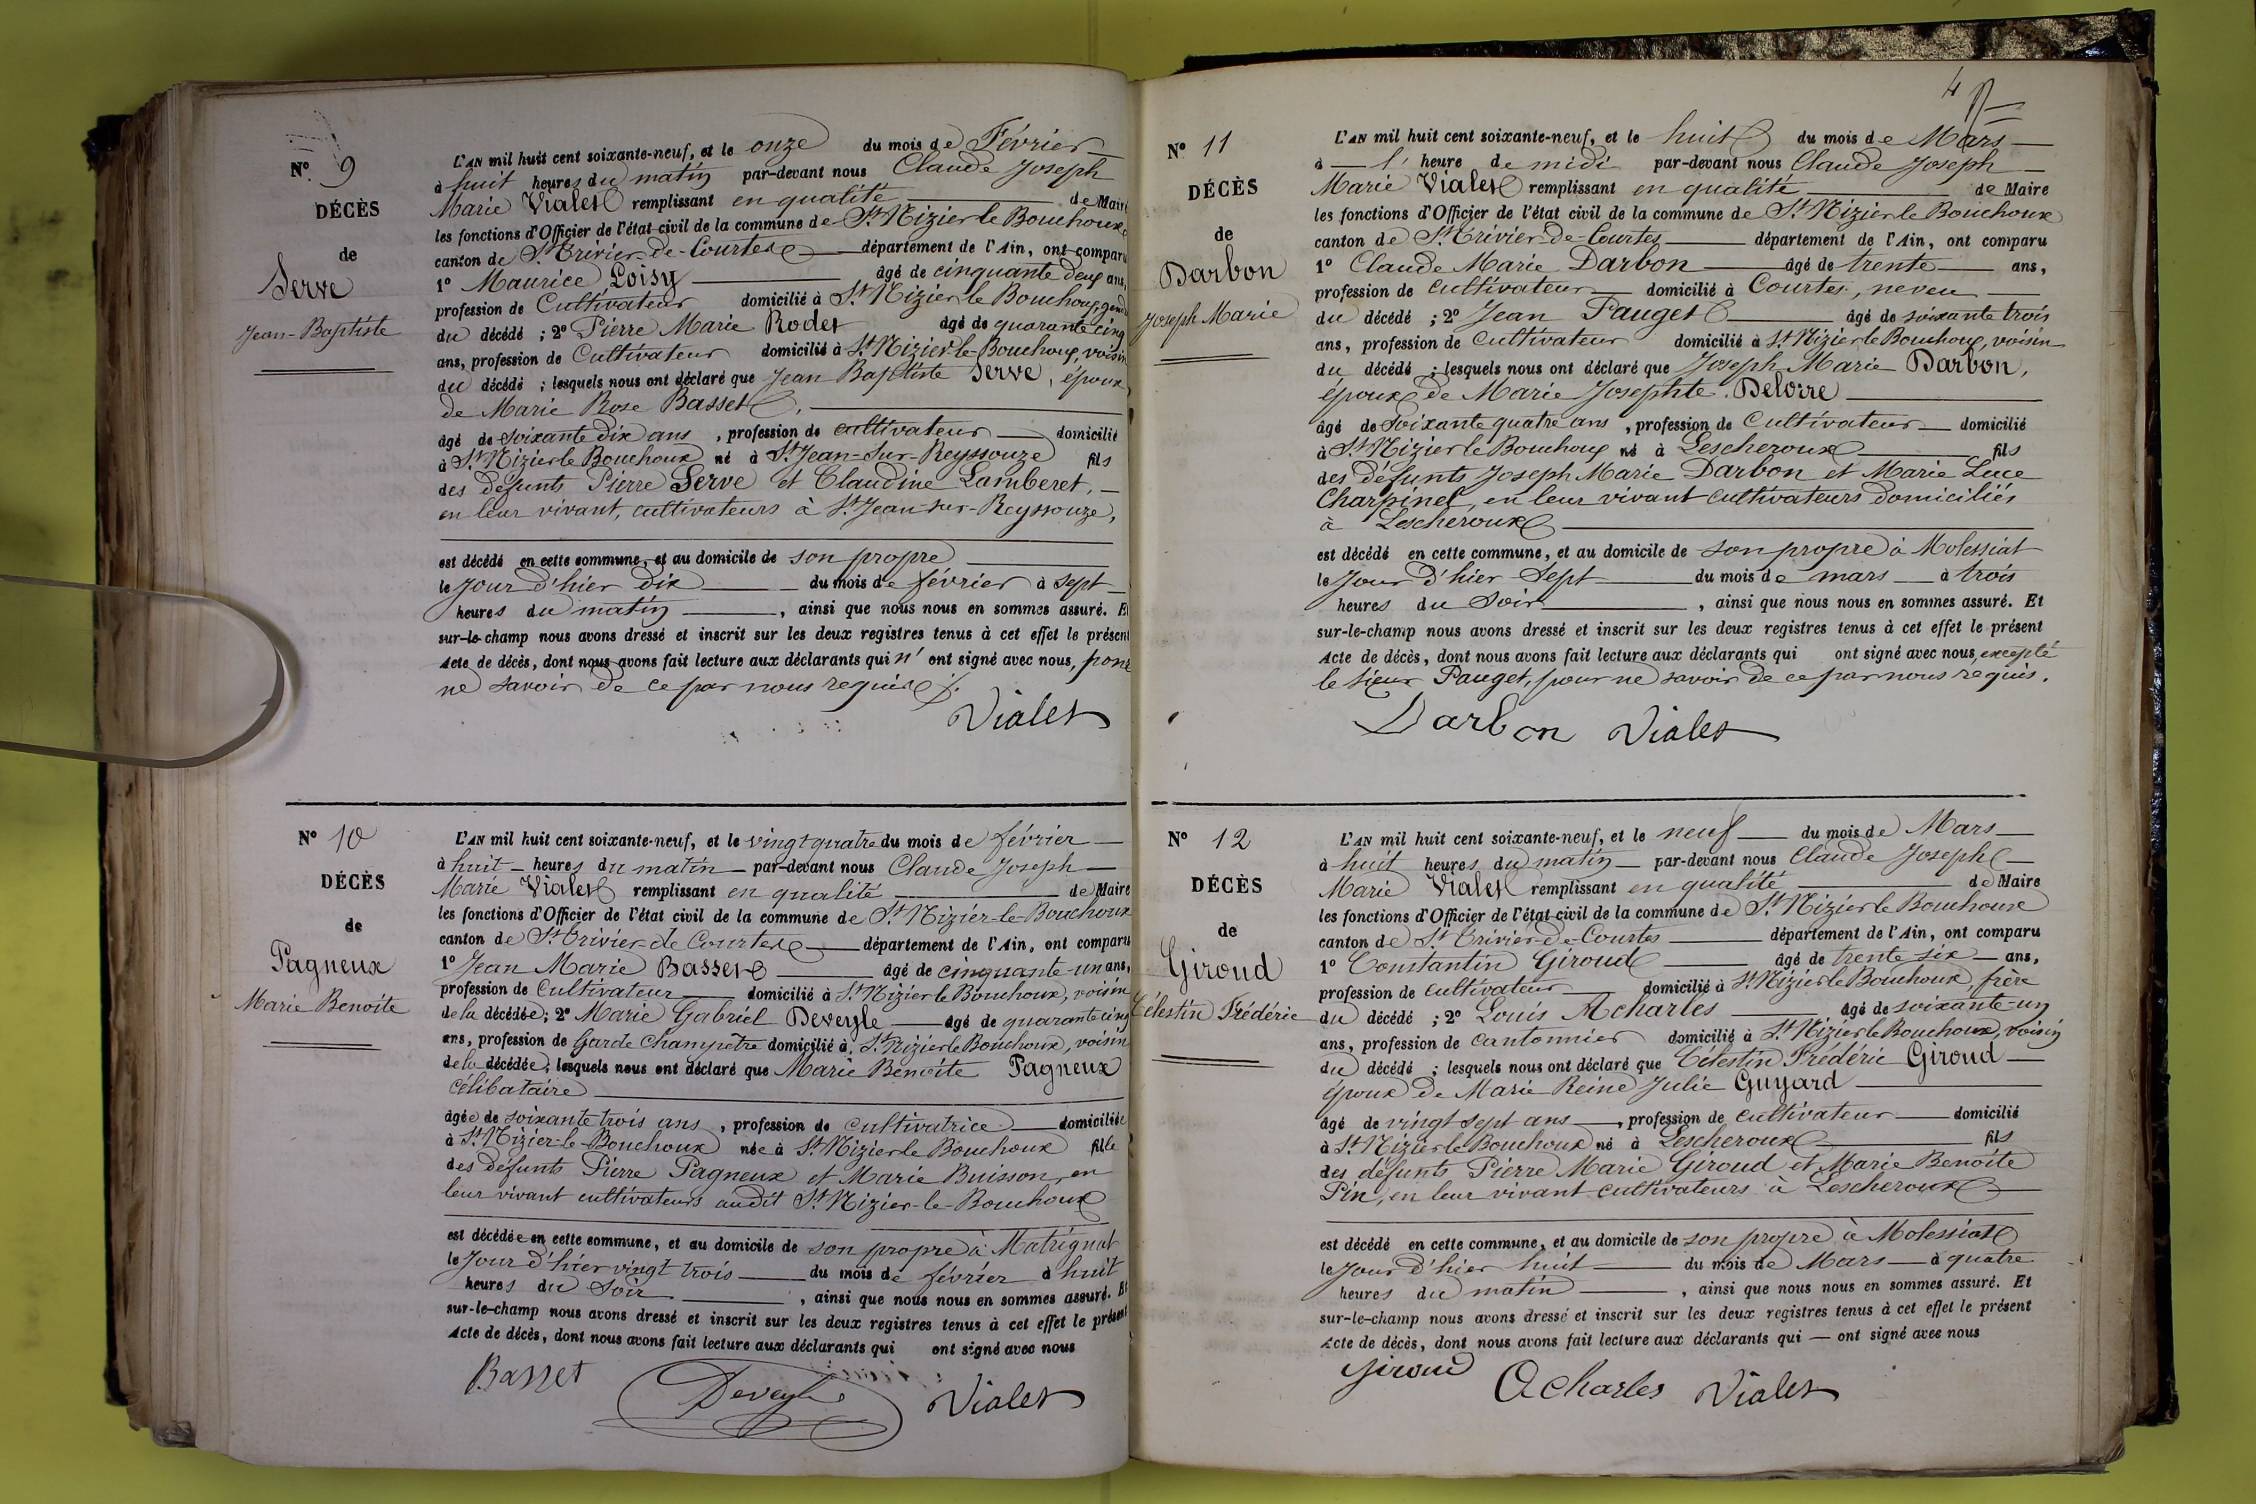 Nº 9
DÉCÈS
de
Serve
Jean-Baptiste
L'AN mil huit cent soixante-neuf, et le onze du mois de Février
à huit heures du matin par-devant nous Claude Joseph
Marie Vialet remplissant en qualité de Maire
les fonctions d'Officier de l'état civil de la commune de St Nizier le Bouchoux
canton de St Trivier-de-Courtes département de l'Ain, ont comparu
1º Maurice Loisy âgé de cinquante deux ans,
profession de Cultivateur domicilié à St Nizier le Bouchoux, gendre
du décédé ; 2º Pierre Marie Rodet âgé de quarante cinq
ans, profession de Cultivateur domicilié à St Nizier-le-Bouchoux, voisin
du décédé ; lesquels nous ont déclaré que Jean Baptiste Serve, époux
de Marie Rose Basset,
âgé de soixante dix ans, profession de cultivateur domicilié
à St Nizier le Bouchoux né à St Jean-sur-Reyssouze fils
des défunts Pierre Serve et Claudine Lamberet,
en leur vivant, cultivateurs à St Jean-sur-Reyssouze,
est décédé en cette commune, et au domicile de son propre
le jour d'hier dix du mois de février à sept
heures du matin, ainsi que nous nous en sommes assuré. Et
sur-le-champ nous avons dressé et inscrit sur les deux registres tenus à cet effet le présent
Acte de décès, dont nous avons fait lecture aux déclarants qui n'ont signé avec nous, pour
ne savoir de ce par nous requis.
Vialet
Nº 10
DÉCÈS
de
Pagneux
Marie Benoite
L'AN mil huit cent soixante-neuf, et le vingt quatre du mois de février
à huit heures du matin par-devant nous Claude Joseph
Marie Vialet remplissant en qualité de Maire
les fonctions d'Officier de l'état civil de la commune de St Nizier-le-Bouchoux
canton de St Trivier-de Courtes département de l'Ain, ont comparu
1º Jean Marie Basset âgé de cinquante-un ans,
profession de Cultivateur domicilié à St Nizier le Bouchoux, voisin
de la décédée ; 2º Marie Gabriel Deveyle âgé de quarante cinq
ans, profession de Garde Champetre domicilié à St Nizier le Bouchoux, voisin
de la décédée ; lesquels nous ont déclaré que Marie Benoite Pagneux
célibataire
âgée de soixante trois ans, profession de cultivatrice domiciliée
à St Nizier-le-Bouchoux née à St Nizier le Bouchoux fille
des défunts Pierre Pagneux et Marie Buisson, en
leur vivant cultivateurs audit St Nizier-le-Bouchoux
est décédée en cette commune, et au domicile de son propre à Matrignat
le jour d'hier vingt trois du mois de février à huit
heures du soir, ainsi que nous nous en sommes assuré. Et
sur-le-champ nous avons dressé et inscrit sur les deux registres tenus à cet effet le présent
Acte de décès, dont nous avons fait lecture aux déclarants qui ont signé avec nous
Basset Deveyle Vialet
4
Nº 11
DÉCÈS
de
Darbon
Joseph Marie
L'AN mil huit cent soixante-neuf, et le huit du mois de Mars
à l'heure de midi par-devant nous Claude Joseph
Marie Vialet remplissant en qualité de Maire
les fonctions d'Officier de l'état civil de la commune de St Nizier le Bouchoux
canton de St Trivier-de-Courtes département de l'Ain, ont comparu
1º Claude Marie Darbon âgé de trente ans,
profession de cultivateur domicilié à Courtes, neveu
du décédé ; 2º Jean Pauget âgé de soixante trois
ans, profession de cultivateur domicilié à St Nizier le Bouchoux, voisin
du décédé ; lesquels nous ont déclaré que Joseph Marie Darbon,
époux de Marie Josephte Delorre
âgé de soixante quatre ans, profession de Cultivateur domicilié
à St Nizier le Bouchoux né à Lescheroux fils
des défunts Joseph Marie Darbon et Marie Luce
Charpinel, en leur vivant cultivateurs domiciliés
à Lescheroux
est décédé en cette commune, et au domicile de son propre à Molessiat
le jour d'hier sept du mois de mars à trois
heures du soir, ainsi que nous nous en sommes assuré. Et
sur-le-champ nous avons dressé et inscrit sur les deux registres tenus à cet effet le présent
Acte de décès, dont nous avons fait lecture aux déclarants qui ont signé avec nous, excepté
le sieur Pauget, pour ne savoir de ce par nous requis.
Darbon Vialet
Nº 12
DÉCÈS
de
Giroud
Célestin Frédéric
L'AN mil huit cent soixante-neuf, et le neuf du mois de Mars
à huit heures du matin par-devant nous Claude Joseph
Marie Vialet remplissant en qualité de Maire
les fonctions d'Officier de l'état civil de la commune de St Nizier le Bouchoux
canton de St Trivier-de-Courtes département de l'Ain, ont comparu
1º Constantin Giroud âgé de trente six ans,
profession de cultivateur domicilié à St Nizier le Bouchoux, frère
du décédé ; 2º Louis Acharles âgé de soixante-un
ans, profession de cantonnier domicilié à St Nizier le Bouchoux, voisin
du décédé ; lesquels nous ont déclaré que Célestin Frédéric Giroud
époux de Marie Reine Julie Guyard
âgé de vingt sept ans, profession de cultivateur domicilié
à St Nizier le Bouchoux né à Lescheroux fils
des défunts Pierre Marie Giroud et Marie Benoite
Pin, en leur vivant cultivateurs à Lescheroux
est décédé en cette commune, et au domicile de son propre à Molessiat
le jour d'hier huit du mois de Mars à quatre
heures du matin, ainsi que nous nous en sommes assuré. Et
sur-le-champ nous avons dressé et inscrit sur les deux registres tenus à cet effet le présent
Acte de décès, dont nous avons fait lecture aux déclarants qui — ont signé avec nous
Giroud Acharles Vialet